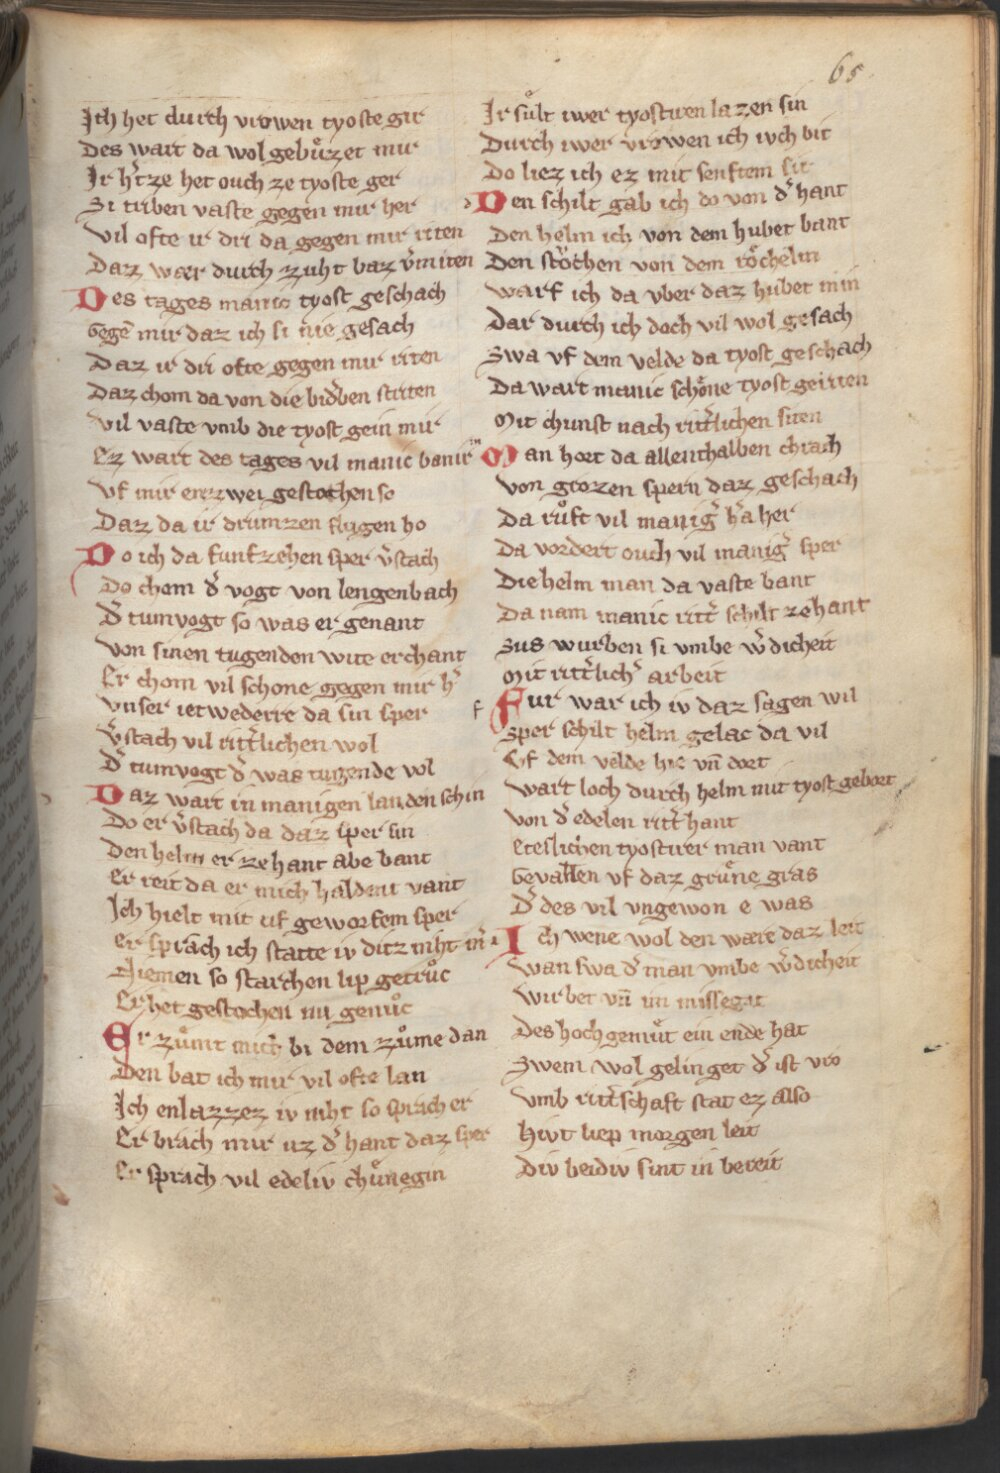 65
Ich het durch vrowen tyoste gir
Des wart da wol gebuͤzet mir
Ir h͛tze het ouch ze tyoste ger
Si triben vaste gegen mir her
Vil ofte ir dri da gegen mir riten
Daz wær durch zuht baz v͛miten
Des tages manic tyost geschach
Gegē mir daz ich si nie gesach
Daz ir dri ofte gegen mir riten
Daz chom da von die bid͛ben striten
Vil vaste vmb die tyost gein mir
Ez wart des tages vil manic banir
Vf mir enzwei gestochen so
Daz da ir drumzen flugen ho
Do ich da funfzehen sper v͛stach
Do chom d͛ vogt von lengenbach
D͛ tumvogt so was er genant
Von sinen tugenden wite erchant
Er chom vil schone gegen mir h͛
Vnser ietwederre da sin sper
V͛stach vil ritt͛lichen wol
D͛ tumvogt d͛ was tugende vol
Daz wart in manigen landen schin
Do er v͛stach da daz sper sin
Den helm er zehant abe bant
Er reit da er mich haldent vant
Ich hielt mit uf geworfem sper
Er sprach ich statte iv ditz niht m͛
Niemen so starchen lip getruͦc
Er het gestochen nu genuͦc
Er zuͦmt mich bi dem zuͦme dan
Den bat ich mir vil ofte lan
Ich enlazzez iv niht so sprach er
Er brach mir uz d͛ hant daz sper
Er sprach vil edeliv chuͤnegin
Ir suͤlt iwer tyostiren lazen sin
Durch iwer vrowen ich ivch bit
Do liez ich ez mit senftem sit
Den schilt gab ich do von d͛ hant
Den helm ich von dem hubet bant
Den stoͮchen von dem roͤchelin
Warf ich da vber daz hubet min
Dar durch ich doch vil wol gesach
Swa vf dem velde da tyost geschach
Da wart manic schoͤne tyost geriten
Mit chunst nach ritt͛lichen siten
Man hort da allenthalben chrach
Von grozen spern daz geschach
Da ruͦft vil manig͛ h͛a her
Da vordert ouch vil manig͛ sper
Die helm man da vaste bant
Da nam manic ritt͛ schilt zehant
Sus wurben si vmbe w͛dicheit
Mit ritt͛lich͛ arbeit
Fur war ich iv daz sagen wil
Sper schilt helm gelac da vil
Vf dem velde hie vn̄ dort
Wart loch durch helm mit tyost gebort
Von d͛ edelen ritt͛ hant
Eteslichen tyostirer man vant
Gevallen vf daz gruͤne gras
D͛ des vil vngewon e was
Ich wene wol den ware daz leit
Wan swa d͛ man vmbe w͛dicheit
Wirbet vn̄ im missegat
Des hochgemuͤt ein ende hat
Swem wol gelinget d͛ ist vro
Vmb ritt͛schaft stat ez also
Hivt liep morgen leit
Div beidiv sint in bereit